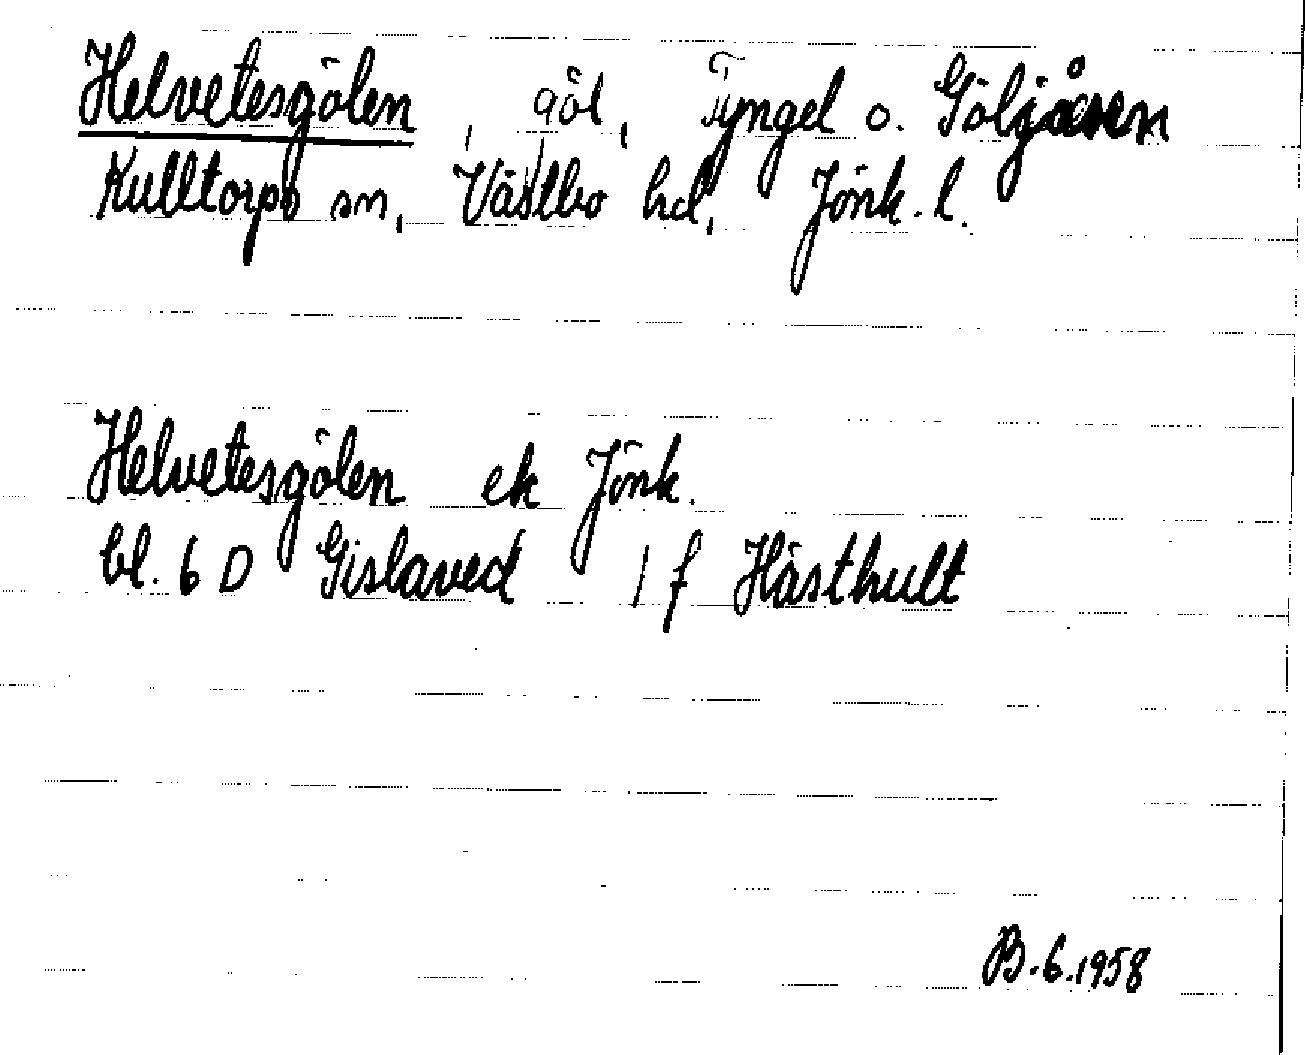 Helvetesgölen, göl, Tyngel o. Göljåsen
Kulltorps sn, Västbo hd, Jönk. l.
Helvetesgölen ek Jönk.
bl. 6 D Gislaved 1 f Hästhult
B.6.1958